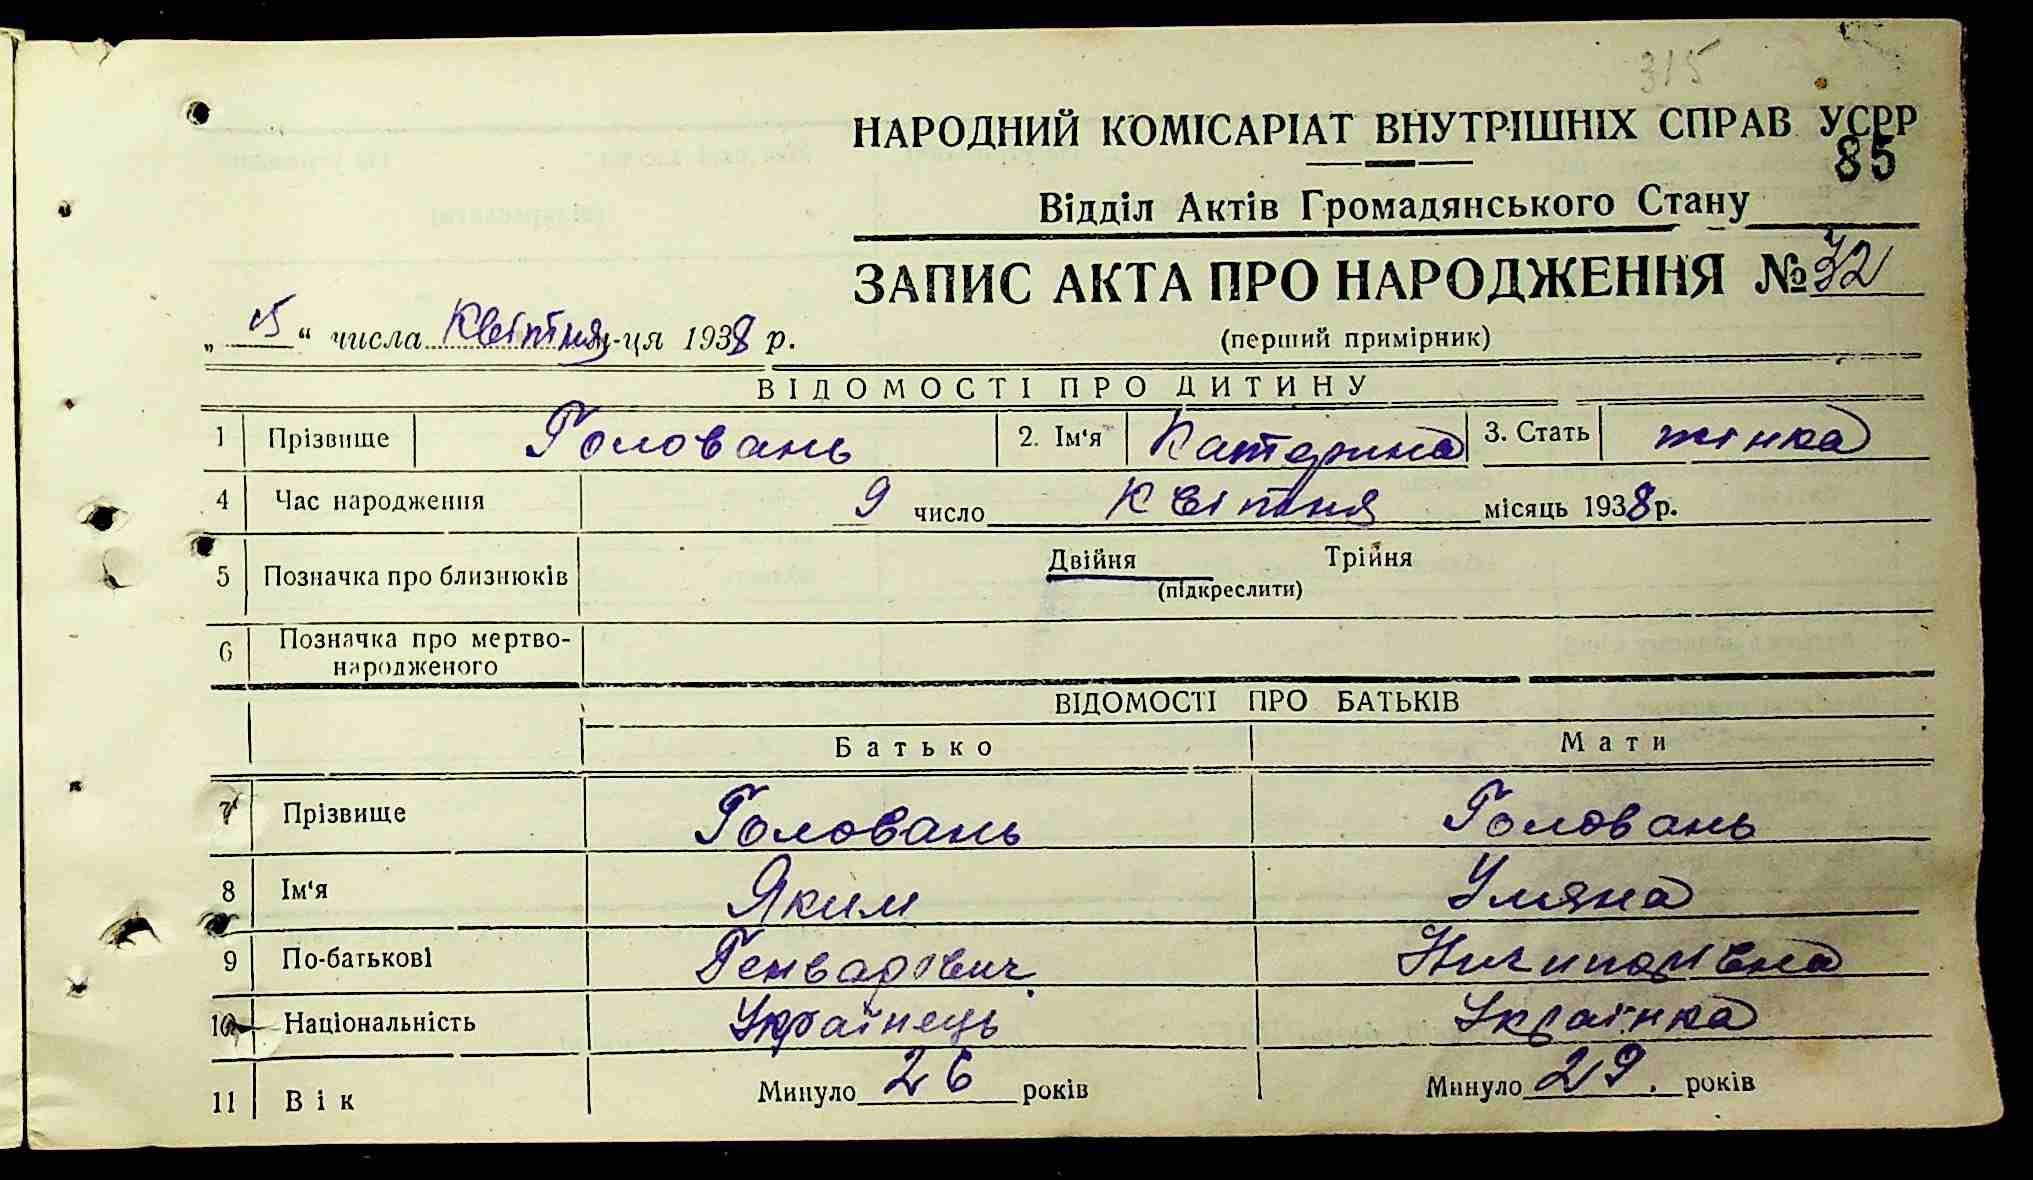 315
НАРОДНИЙ КОМІСАРІАТ ВНУТРІШНІХ СПРАВ УСРР
85
Відділ Актів Громадянського Стану
ЗАПИС АКТА ПРО НАРОДЖЕННЯ № 32
(перший примірник)
„ 15 “ числа Квітня м-ця 1938 р.
ВІДОМОСТІ ПРО ДИТИНУ
1 Прізвище Головань 2. Ім‘я Катерина 3. Стать жінка
4 Час народження 9 число Квітня місяць 1938 р.
5 Позначка про близнюків Двійня Трійня
(підкреслити)
6 Позначка про мертво-
народженого
ВІДОМОСТІ ПРО БАТЬКІВ
Батько Мати
7 Прізвище Головань Головань
8 Ім‘я Яким Уляна
9 По-батькові
10 Національність Українець Українка
11 Вік Минуло 26 років Минуло 29. років